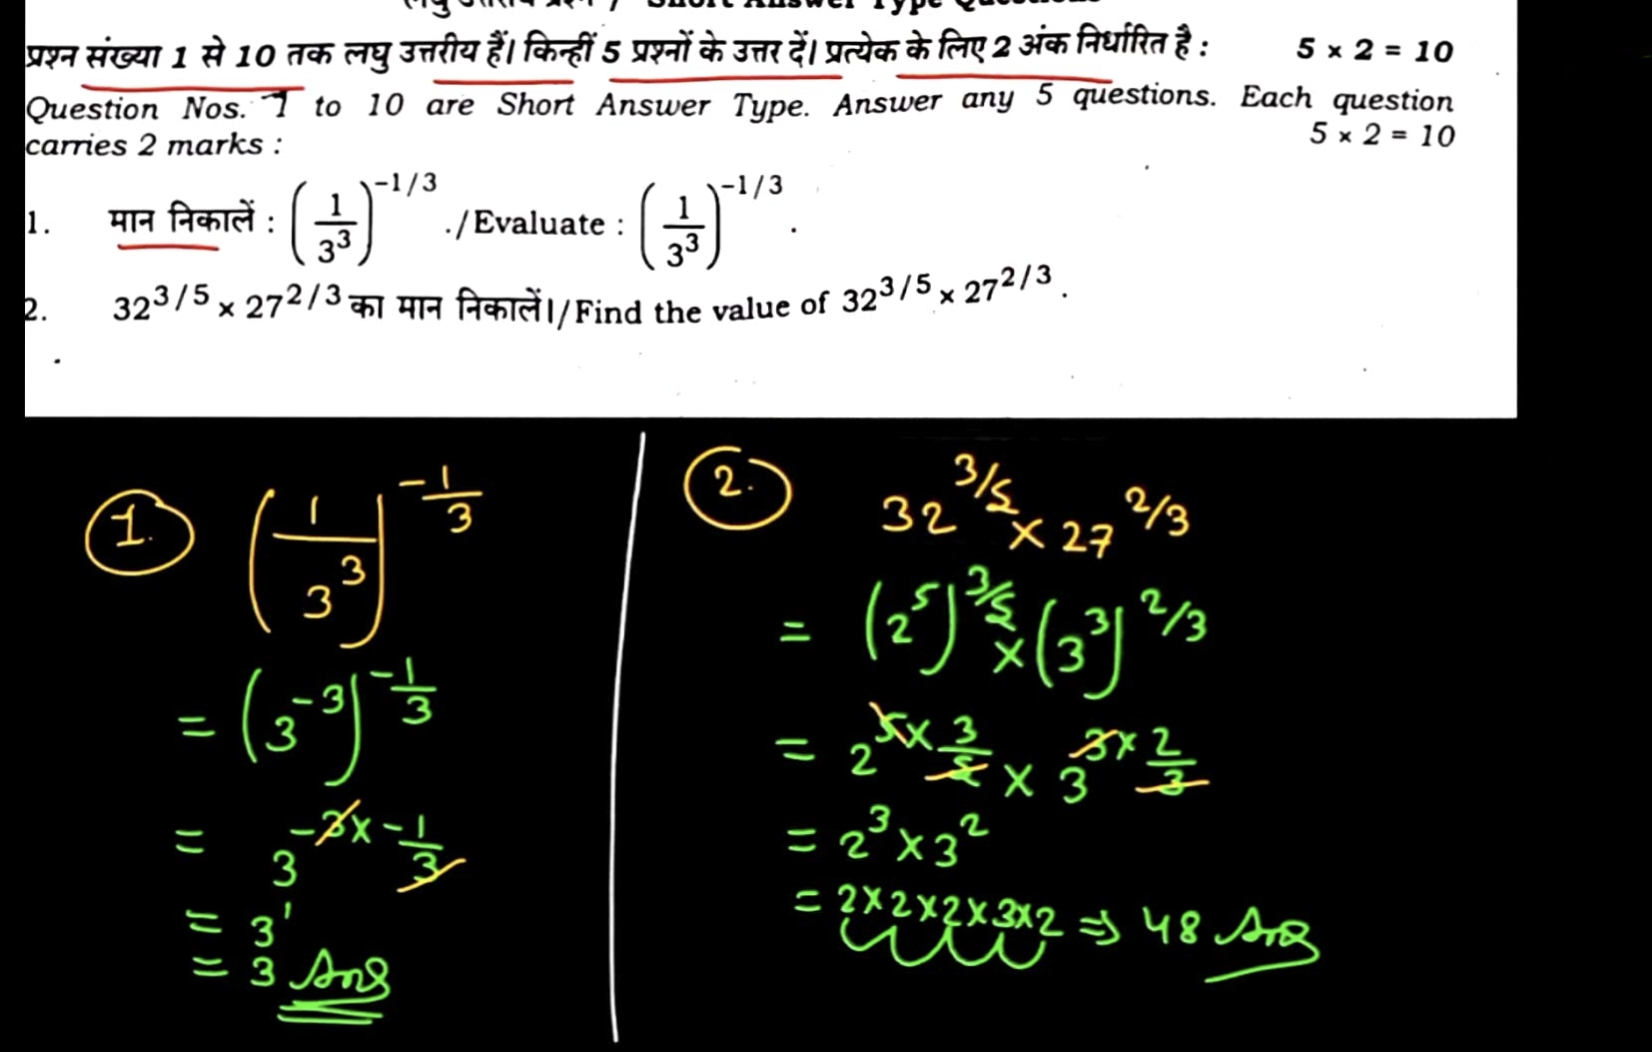 लघु उत्तरीय प्रश्न / Short Answer Type Questions
प्रश्न संख्या 1 से 10 तक लघु उत्तरीय हैं। किन्हीं 5 प्रश्नों के उत्तर दें। प्रत्येक के लिए 2 अंक निर्धारित है : 5 × 2 = 10
Question Nos. 1 to 10 are Short Answer Type. Answer any 5 questions. Each question
carries 2 marks : 5 × 2 = 10
1. मान निकालें : (1/3^3)^{-1/3} ./Evaluate : (1/3^3)^{-1/3} .
2. 32^{3/5} × 27^{2/3} का मान निकालें।/Find the value of 32^{3/5} × 27^{2/3} .
1. (1/3^3)^{-1/3}
= (3^{-3})^{-1/3}
= 3^{-3 × -1/3}
= 3^1
= 3 Ans
2. 32^{3/5} × 27^{2/3}
= (2^5)^{3/5} × (3^3)^{2/3}
= 2^{5 × 3/5} × 3^{3 × 2/3}
= 2^3 × 3^2
= 2×2×2×3×2 ⇒ 48 Ans